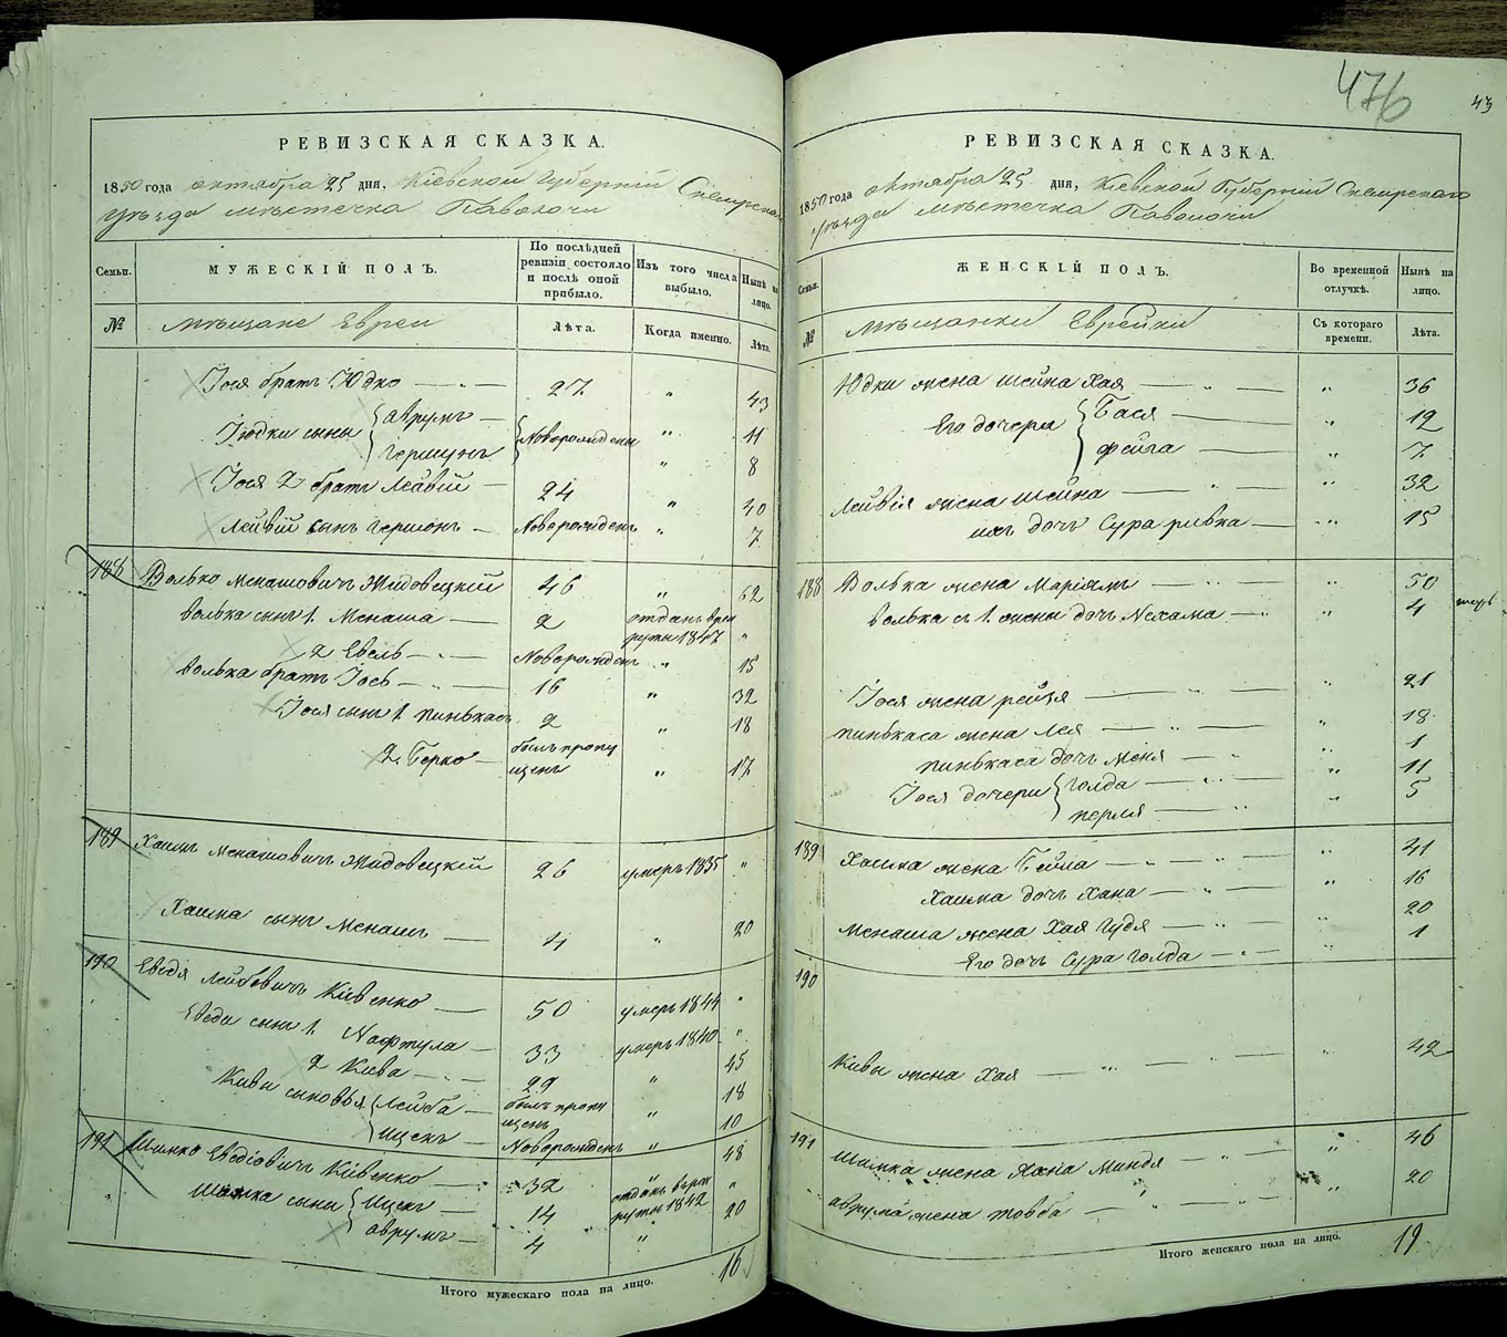 476
43
РЕВИЗСКАЯ СКАЗКА.
1850 года октября 25 дня, Кіевской Губерніи Сквирскаго
уѣзда мѣстечка Паволочи
Семьи.
МУЖЕСКІЙ ПОЛЪ.
По послѣдней ревизіи состояло и послѣ оной прибыло.
Изъ того числа выбыло.
Нынѣ на лицо.
№
мѣщане Евреи
Лѣта.
Когда именно.
Лѣта.
Іося братъ Юдко — 27 " 43
Іюдки сыны аврумъ — Новорожденъ " 11
гершунъ " 8
Іося 2 братъ Лейвій — 24 " 40
Лейвій сынъ гершонъ — Новорожденъ " 7
188 Волько Менашовичъ Жидовецкій 46 " 62
Волька сынъ 1. Менаша — 2 отданъ врек
руты 1847 "
2 Евель — Новорожденъ " 15
Волька братъ Іось — 16 " 32
Іося сынъ 1 пинькасъ 2 " 18
2. Берко — былъ пропу
щенъ " 17
189 Хаимъ Менашовичъ Жидовецкій 26 умеръ 1835 "
Хаима сынъ Менашъ — 4 " 20
190 Еведя Лейбовичъ Кіевенко — 50 умеръ 1844 "
Еведи сынъ 1. Нафтула — 33 умеръ 1840 "
2 Кива — 29 " 45
Кивы сыновья Лейба — былъ пропу
щенъ " 18
Ицекъ — Новорожденъ " 10
191 Шимко Еведіовичъ Кіевенко — 32 " 48
Шимка сыны Ицекъ — 14 отданъ врек
руты 1842 "
аврумъ — 4 " 20
Итого мужескаго пола на лицо. 16
РЕВИЗСКАЯ СКАЗКА.
1850 года октября 25 дня, Кіевской Губерніи Сквирскаго
уѣзда мѣстечка Паволочи
Семьи.
ЖЕНСКІЙ ПОЛЪ.
Во временной отлучкѣ.
Нынѣ на лицо.
№
Мѣщанки Еврейки
Съ котораго времени.
Лѣта.
Юдки жена шейна Хая — " 36
Его дочери Бася — " 12
фейга — " 7
Лейвія жена шейна — " 32
ихъ дочь Сура ривка — " 15
188 Волька жена Маріямъ — " 50
Волька съ 1. жены дочь Нехама — " 4
Іося жена рейзя — " 21
пинькаса жена Лея — " 18
пинькаса дочь Меня — " 1
Іося дочери голда — " 11
перля — " 5
189 Хаима жена Бейла — " 41
Хаима дочь Хана — " 16
Менаша жена Хая гудя — " 20
Его дочь Сура голда — " 1
190
Кивы жена Хая — " 42
191 Шимка жена Хана Миндя — " 46
аврума жена товба — " 20
Итого женскаго пола на лицо. 19